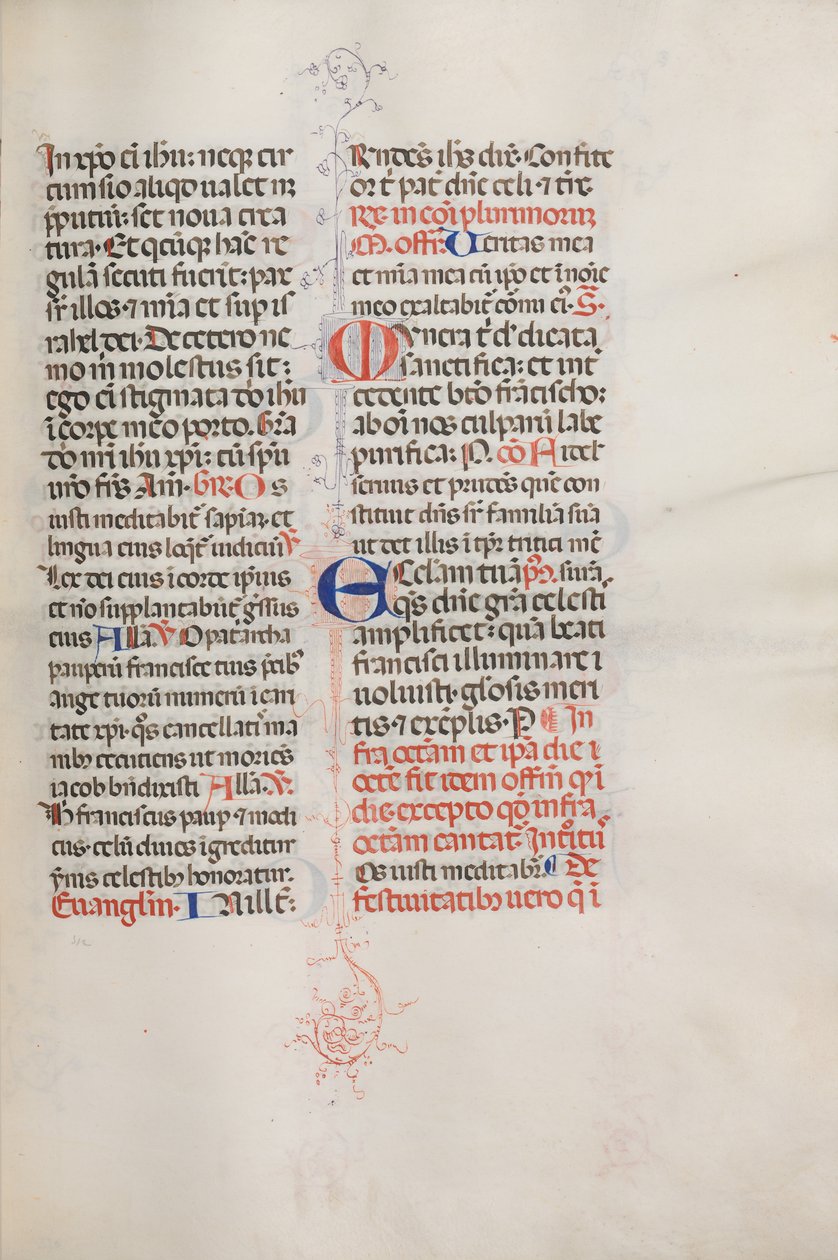 In xp̄o ei ih̄u: neq; cir
cumsio aliqd ualet nꝫ
p̄putiū: set noua crea
tura. Et qcūq; hāc re
gulā secuti fuerīt: pax
sr̄ illos. ⁊ mīa et sup is
rahel dei. De cetero ne
mo m̄ molestus sit:
ego ei stigmata dn̄i ih̄u
ī corpe meo porto. Gr̄a
dn̄i nr̄i ih̄u xp̄i: cū sp̄u
uro fr̄s Am̄. GR. Os
iusti meditabit̄ sapiaꝫ. et
lingua eius loqt̄ iudiciū ℣
Lex dei eius ī corde ip̄ius
et nō supplantabūt̄ gr̄ssus
eius Alla. ℣ O pat̄archa
pauperū francisce tuis p̄cibꝰ
auge tuorū numerū ī cari
tate xp̄i. qos cancellatī ma
nibꝫ cecutiens ut moriēs
iacob bn̄dixisti Allā. ℣.
Hic franciscus paup ⁊ modi
cus. celū diues īgreditur
ymis celestibꝫ honoratur.
Euangliū. I N ill t̄:
Rn̄dēs ih̄s dix̄. Confite
or t̄ pat̄ dn̄e celi. ⁊ tr̄e.
Re. in cōi plurimoruꝫ
M. offr̄. Veritas mea
et mīa mea cū ip̄o et ī noīe
meo exaltabit̄ cornu ei. S.
Munera t̄ d̄ dicata
sanctifica: et int̄
cedente bt̄o frācischo:
ab oī nos culparū labe
purifica: P. cō Fidel̄
seruus et prudēs quē con
stituit dn̄s sr̄ familiā suā
ut det illis ī tp̄r tritici mē
Ecclam tuā pꝰ. surā.
qs dn̄e gr̄a celesti
amplificet: quā beati
francisci illuminare ī
uoluisti. glosis meri
tis. ⁊ exēplis. P In
fra octām et ip̄a die ī
octē fit idem offm̄ qd ī
die. excepto qd infra
octām cantat̄. Introitū
Os iusti meditabr̄. De
festiuitatibꝫ uero q̄ ī